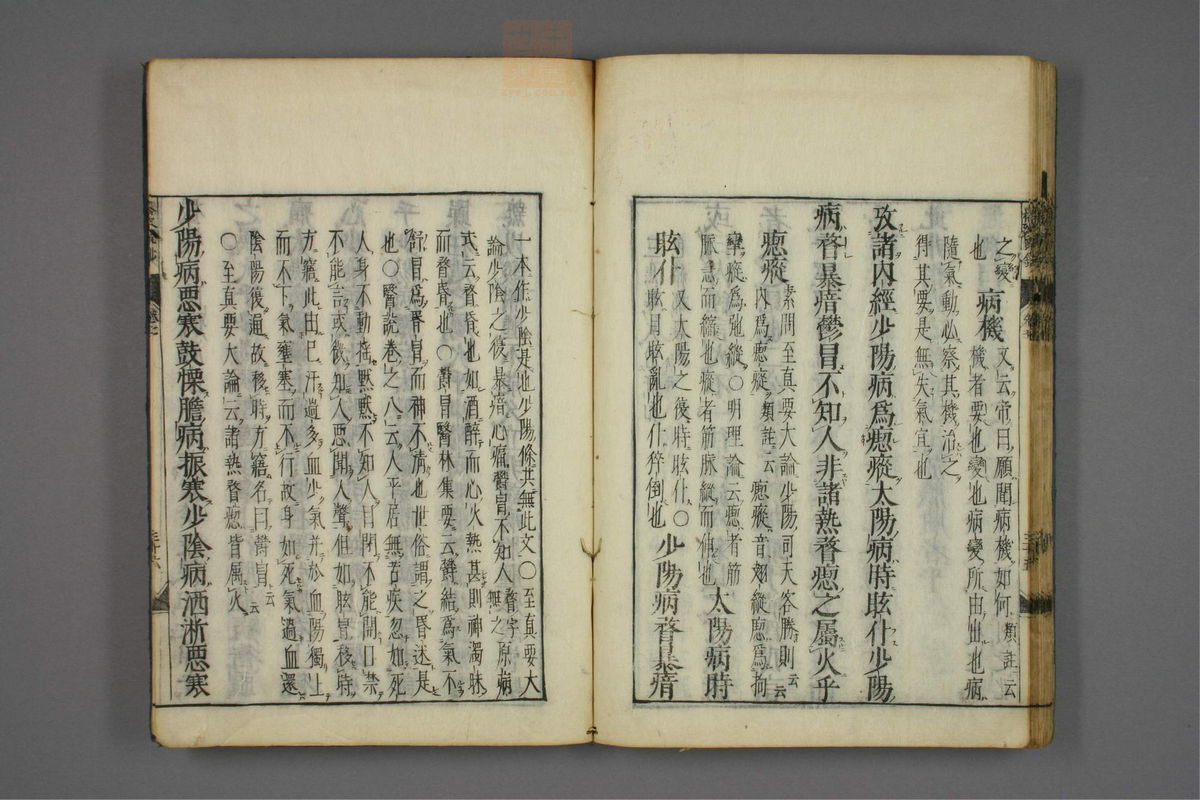 之變 病機 又云帝曰願聞病機如何 類註云
也 機者要也變也病變所由出也病
隨氣動必察其機治之
得其要是無失氣宜也
攷諸內經少陽病爲瘛瘲太陽病時眩仆少陽
病瞀暴瘖鬱冒不知人非諸熱瞀瘛之屬火乎
瘛瘲 素問至真要大論少陽司天客勝則云
內爲瘛瘲類註云瘛瘲音翅縱瘛爲拘
攣瘲爲弛縱○明理論云瘛者筋
脈急而縮也瘲者筋脈縱而伸也 太陽病時
眩仆 又太陽之復時眩仆○
眩目眩亂也仆猝倒也 少陽病瞀暴瘖
一本作少陰是也少陽條共無此文○至真要大
論少陰之復暴瘖心痛鬱冒不知人 瞀字無之 原病
式云瞀昏也如酒醉而心火熱甚則神濁昧
而瞀昏也○鬱冒醫林集要云鬱結爲氣不
舒冒爲昏冒而神不清也世俗謂之昏迷是
也○醫說卷之八云人平居無苦疾忽如死
人身不動搖默默不知人目閉不能開口禁
不能言或微知人惡聞人聲但如眩冒移時
方寤此由已汗過多血少氣并於血陽獨上
而不下氣壅塞而不行故身如死氣過血還
陰陽復通故移時方寤名曰鬱冒云
○至真要大論云諸熱瞀瘛皆屬火
少陽病惡寒鼓慄膽病振寒少陰病洒淅惡寒